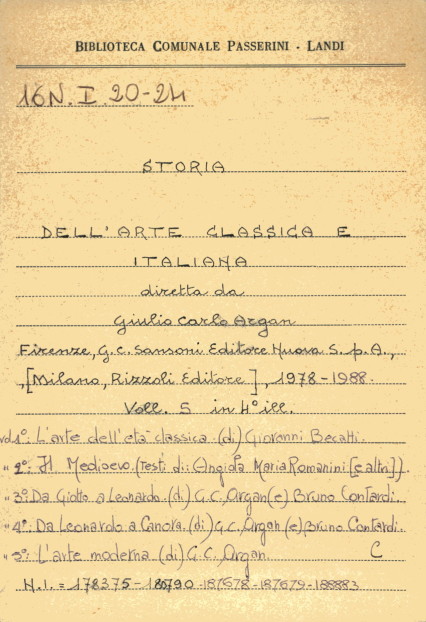 BIBLIOTECA COMUNALE PASSERINI - LANDI
16N. I. 20-24
STORIA
DELL'ARTE CLASSICA E
ITALIANA
diretta da
Giulio Carlo Argan
Firenze, G.C. Sansoni Editore Nuova S.p.A.,
,[Milano, Rizzoli Editore], 1978-1988.
Voll. 5 in 4° ill.
vol 1°: L'arte dell'età classica. (di) Giovanni Becatti.
" 2°: Il Medioevo. (Testi di: (Angiola Maria Romanini [e altri]).
" 3°: Da Giotto a Leonardo. (di) G.C. Argan (e) Bruno Contardi.
" 4°: Da Leonardo a Canova. (di) G.C. Argan (e) Bruno Contardi.
" 5°: L'arte moderna. (di) G.C. Argan. C
N.I. = 178375 - 180790 - 187678 - 187679 - 188883